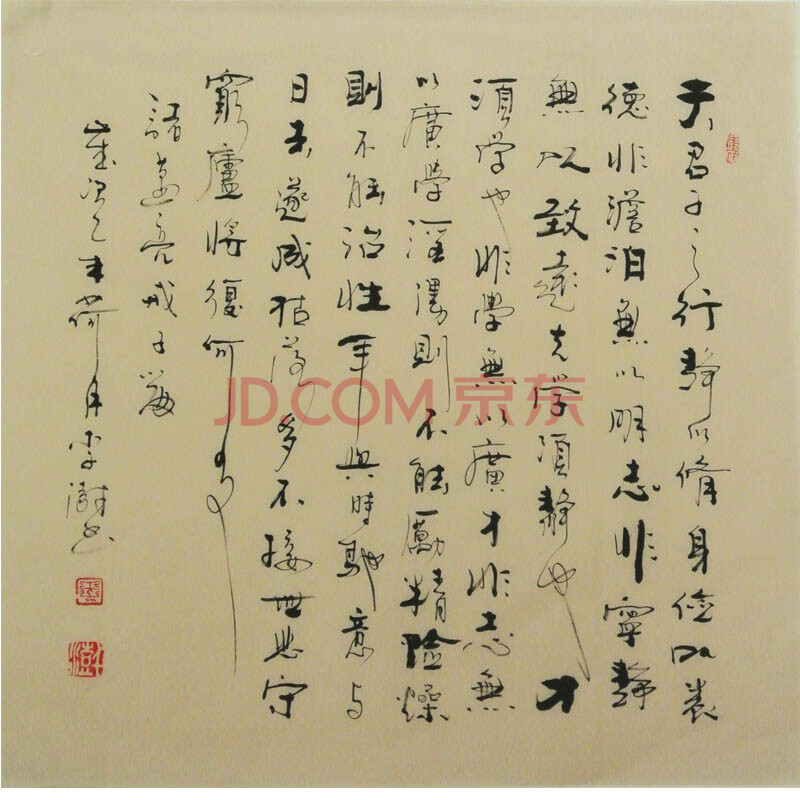 夫君子之行靜以脩身儉以養
德非澹泊無以明志非寧靜
無以致遠夫学須靜也才
須学也非學無以廣才非志無
以廣學淫漫則不能勵精險燥
則不能治性年與時馳意与
日去遂成枯落多不接世悲守
窮廬將復何及
諸葛亮戒子
歲次乙未荷月李書
JD.COM 京东